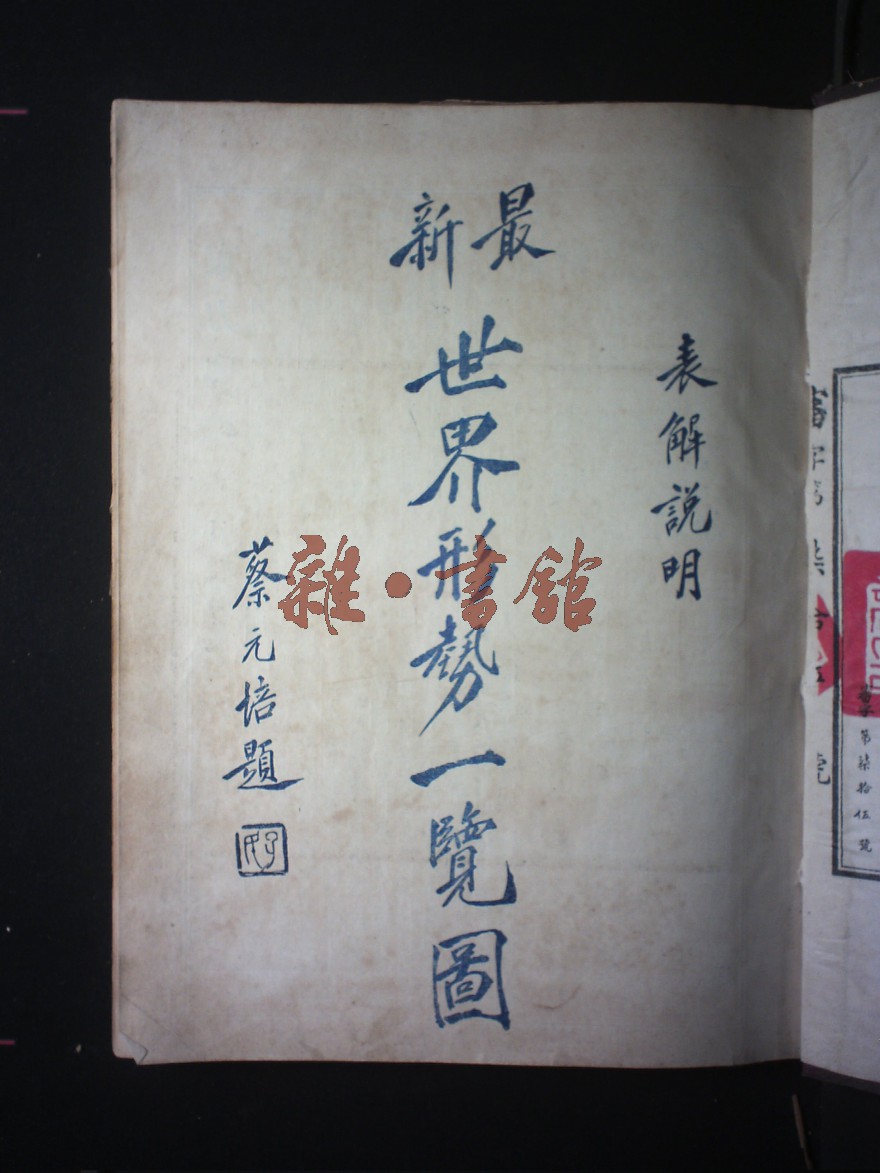 表解說明
最新
世界形勢一覽圖
蔡元培題
雜·書館
字第柒拾伍號